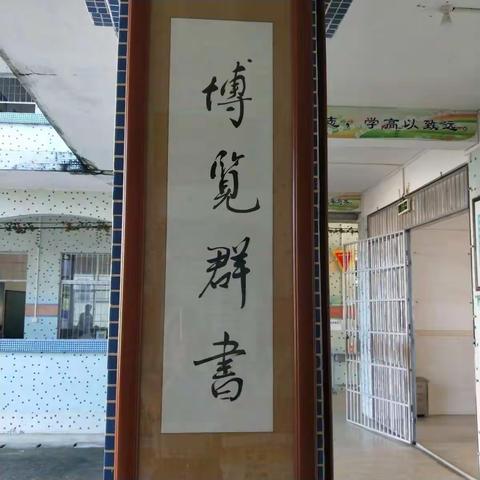 博覽群書
志 学高以致远